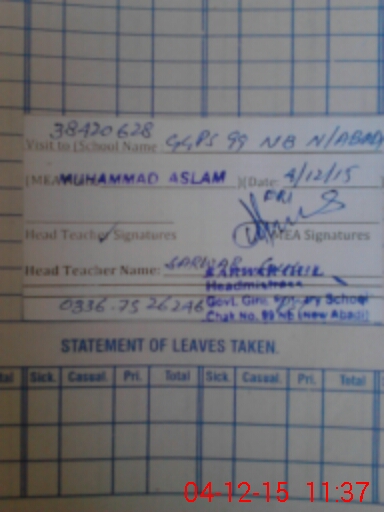 38420628
Visit to (School Name GGPS 99 NB N/ABADI
(MEA MUHAMMAD ASLAM )(Date: 4/12/15 )
FRI
Head Teacher Signatures MEA Signatures
Head Teacher Name: SARWAR
Headmistress
0336-7526246 Govt. Girls Primary School
Chak No. 99 NB (New Abadi)
STATEMENT OF LEAVES TAKEN.
tal Sick. Casual. Pri. Total Sick. Casual. Pri. Total
04-12-15 11:37